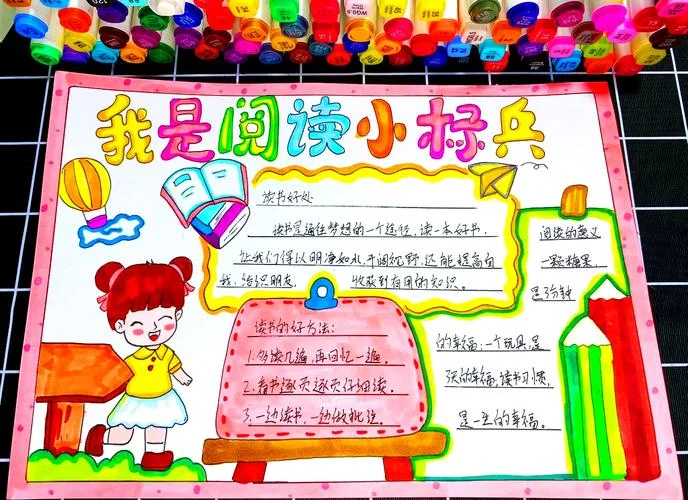 我是阅读小标兵
读书好处
读书是通往梦想的一个途径,读一本好书,
让我们得以明净如水,开阔视野,还能提高自
我,结识朋友, 收获到有用的知识。
读书的好方法:
1.多读几遍,再回忆一遍.
2.看书逐页逐页仔细读.
3.一边读书,一边做批注.
阅读的意义
一颗糖果,
是3分钟
的幸福;一个玩具,是
天的幸福,读书习惯,
是一生的幸福。